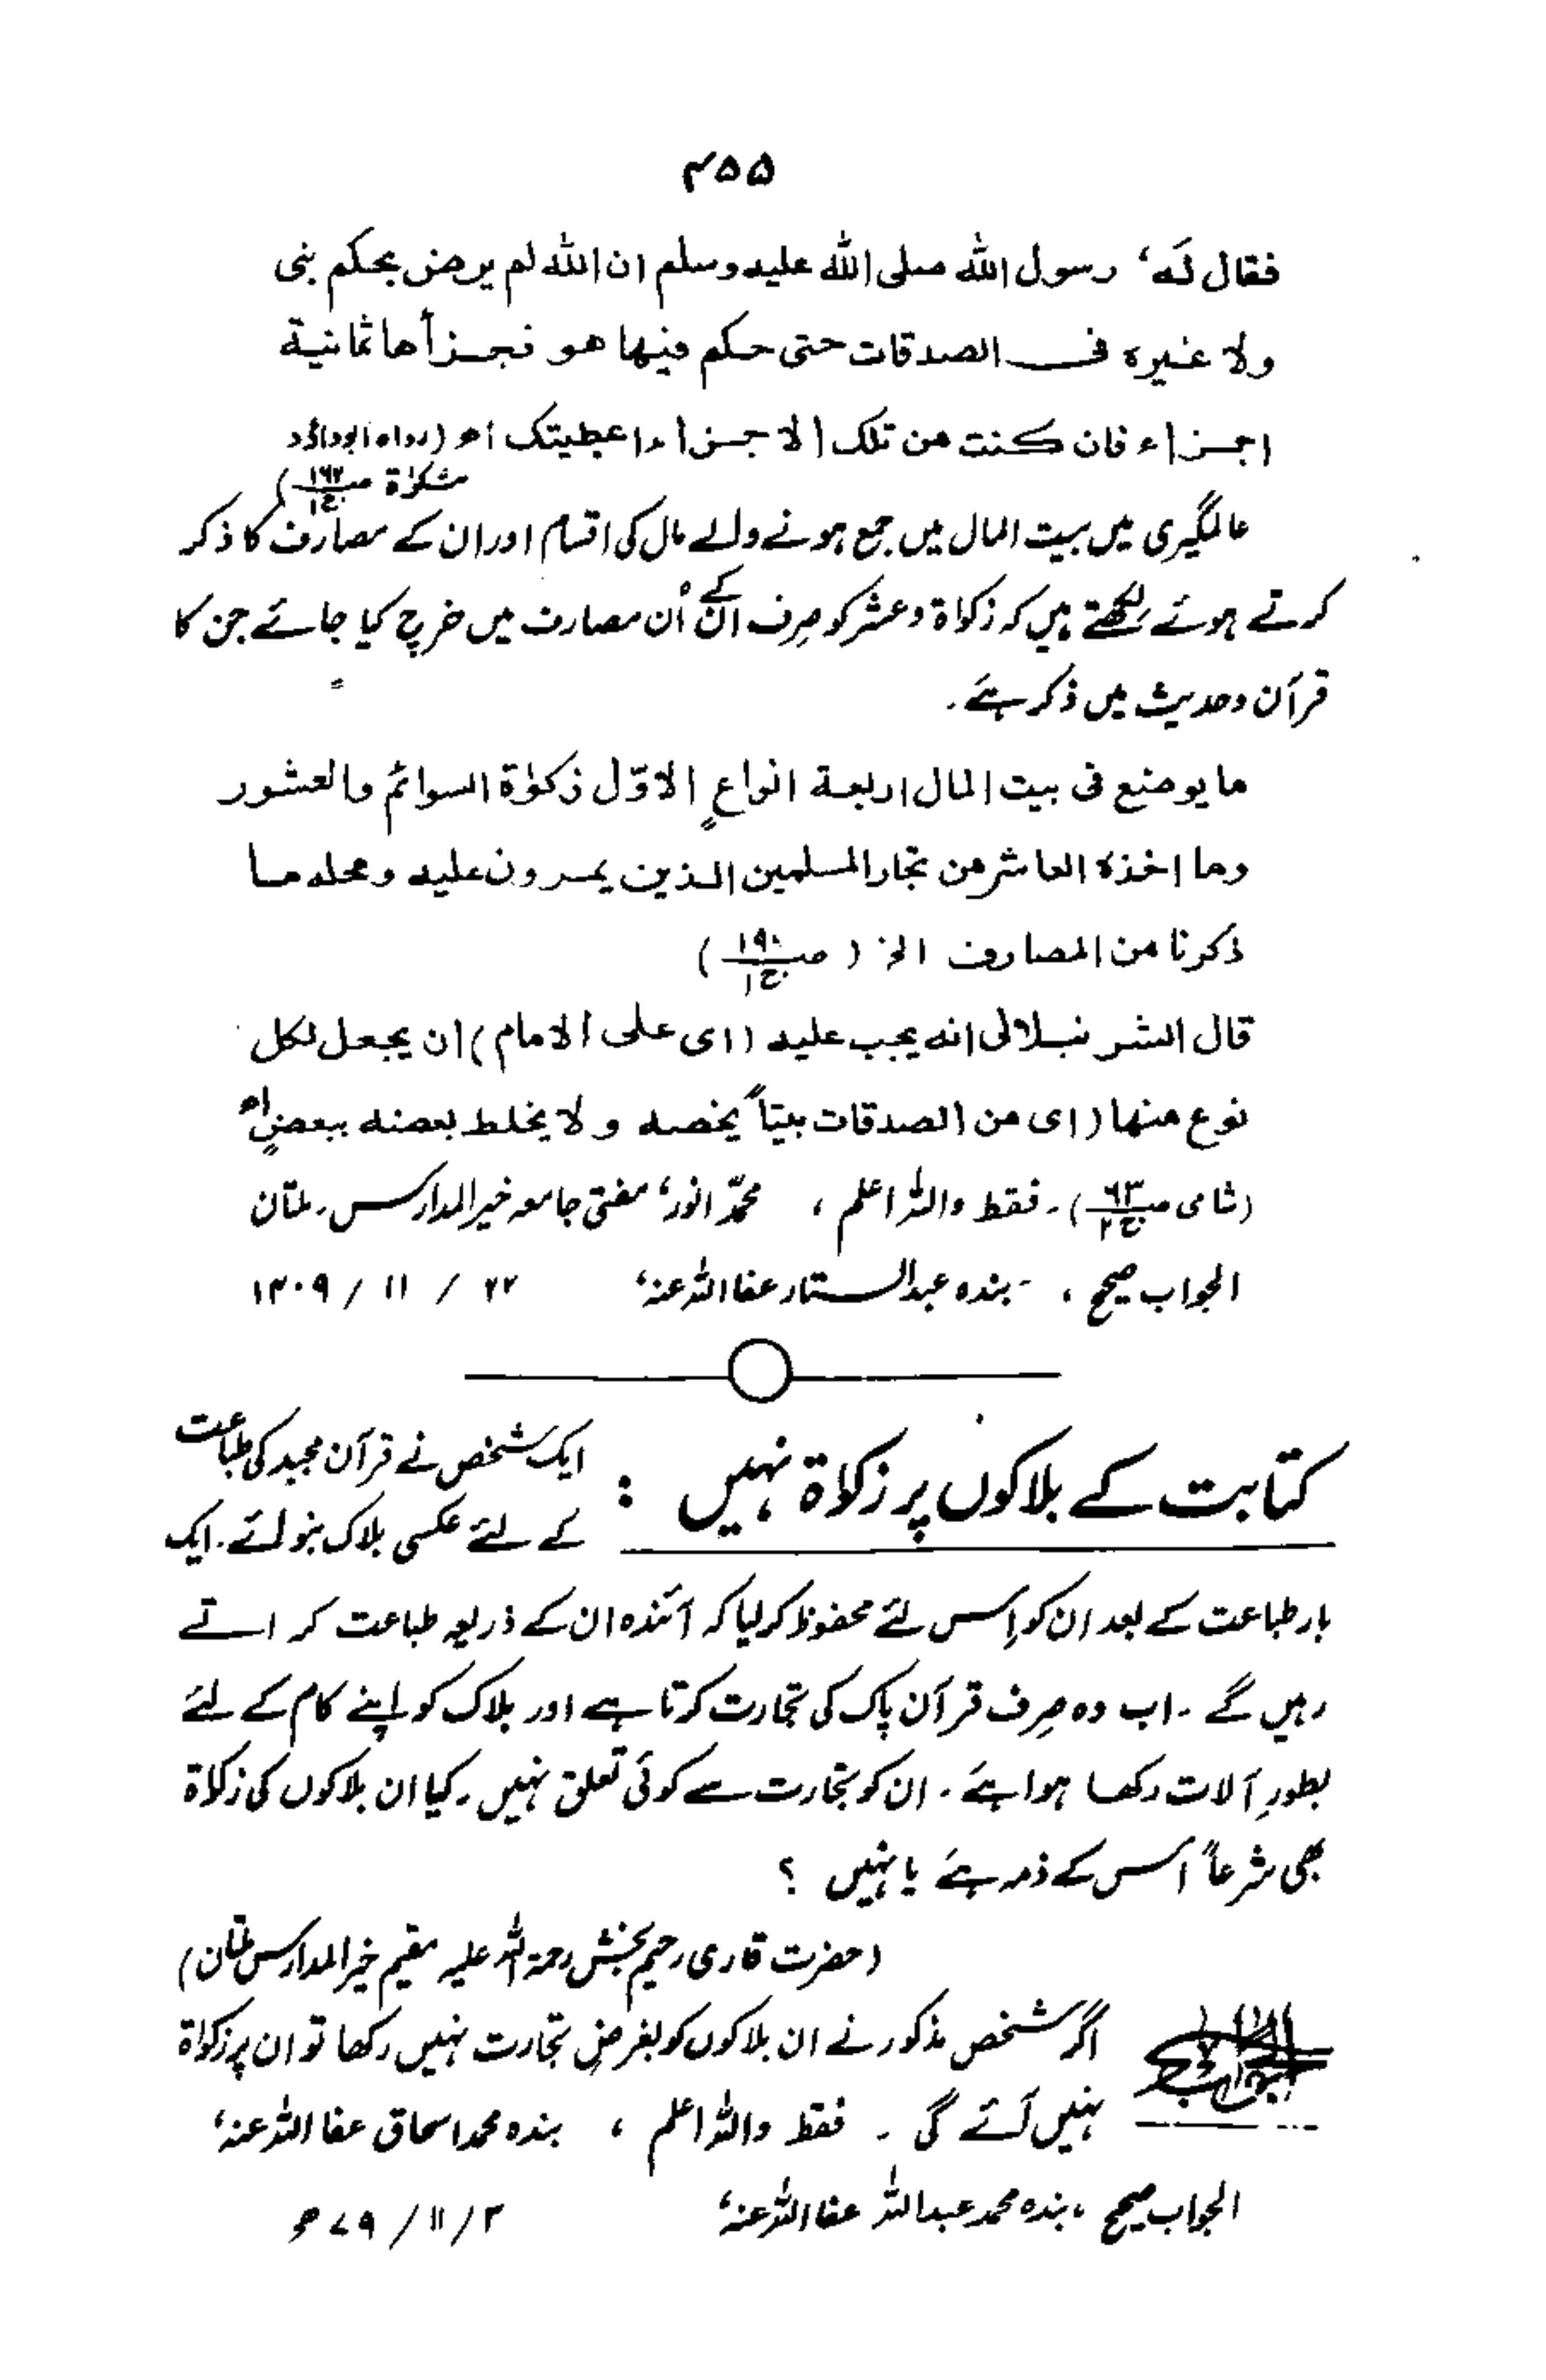 ۴۵۵
فقال لہ‘ رسول اللہ صلی اللہ علیہ وسلم ان اللہ لم یرض بحکم نبی
ولا غیرہ فی الصدقات حتی حکم فیھا ھو فجزأھا ثمانیة
اجزاء فان کنت من تلک الاجزاء اعطیتک اھ (رواہ ابوداؤد
مشکوٰة ص۱۶۲ ج۱)
عالمگیری میں بیت المال میں جمع ہونے والے مال کی اقسام اور ان کے مصارف کا ذکر
کرتے ہوئے لکھتے ہیں کہ زکوٰة و عشر کو صرف ان کے اُن مصارف میں خرچ کیا جائے جن کا
قرآن و حدیث میں ذکر ہے۔
ما یوضع فی بیت المال اربعة انواعٍ الاوّل زکوٰة السوائم والعشور
وما اخذہ العاشر من تجار المسلمین الذین یمرون علیہ ومحلہ ما
ذکرنا من المصارف الخ (ص۱۹۰ ج۱)
قال الشرنبلالی انہ یجب علیہ (ای علی الامام) ان یجعل لکل
نوع منھا (ای من الصدقات بیتاً یخصہ ولا یخلط بعضہ ببعضٍ اھ
(شامی ص۶۳ ج۲)۔ فقط واللہ اعلم ، محمّد انور‘ مفتی جامعہ خیر المدارس۔ ملتان
الجواب صحیح ، بندہ عبدالستار عفا اللہ عنہ‘ ۲۲ / ۱۱ / ۱۴۰۹
کتابت کے بلاکوں پر زکوٰة نہیں :
ایک شخص نے قرآن مجید کی طباعت
کے لئے عکسی بلاک بنوائے۔ ایک
بار طباعت کے بعد ان کو اِس لئے محفوظ کر لیا کہ آئندہ ان کے ذریعہ طباعت کراتے
رہیں گے ۔ اب وہ صرف قرآن پاک کی تجارت کرتا ہے اور بلاک کو اپنے کام کے لئے
بطورِ آلات رکھا ہوا ہے ۔ ان کو تجارت سے کوئی تعلق نہیں ۔ کیا ان بلاکوں کی زکوٰة
بھی شرعاً اُس کے ذمہ ہے یا نہیں ؟
(حضرت قاری رحیم بخش رحمۃ اللہ علیہ مقیم خیر المدارس ملتان)
الجواب اگر شخص مذکور نے ان بلاکوں کو بغرضِ تجارت نہیں رکھا تو ان پر زکوٰة
نہیں آئے گی ۔ فقط واللہ اعلم ، بندہ محمد اسحاق عفا اللہ عنہ‘
الجواب صحیح ، بندہ محمد عبداللہ عفا اللہ عنہ‘ ۳/ ۱۱/ ۷۹ ھ